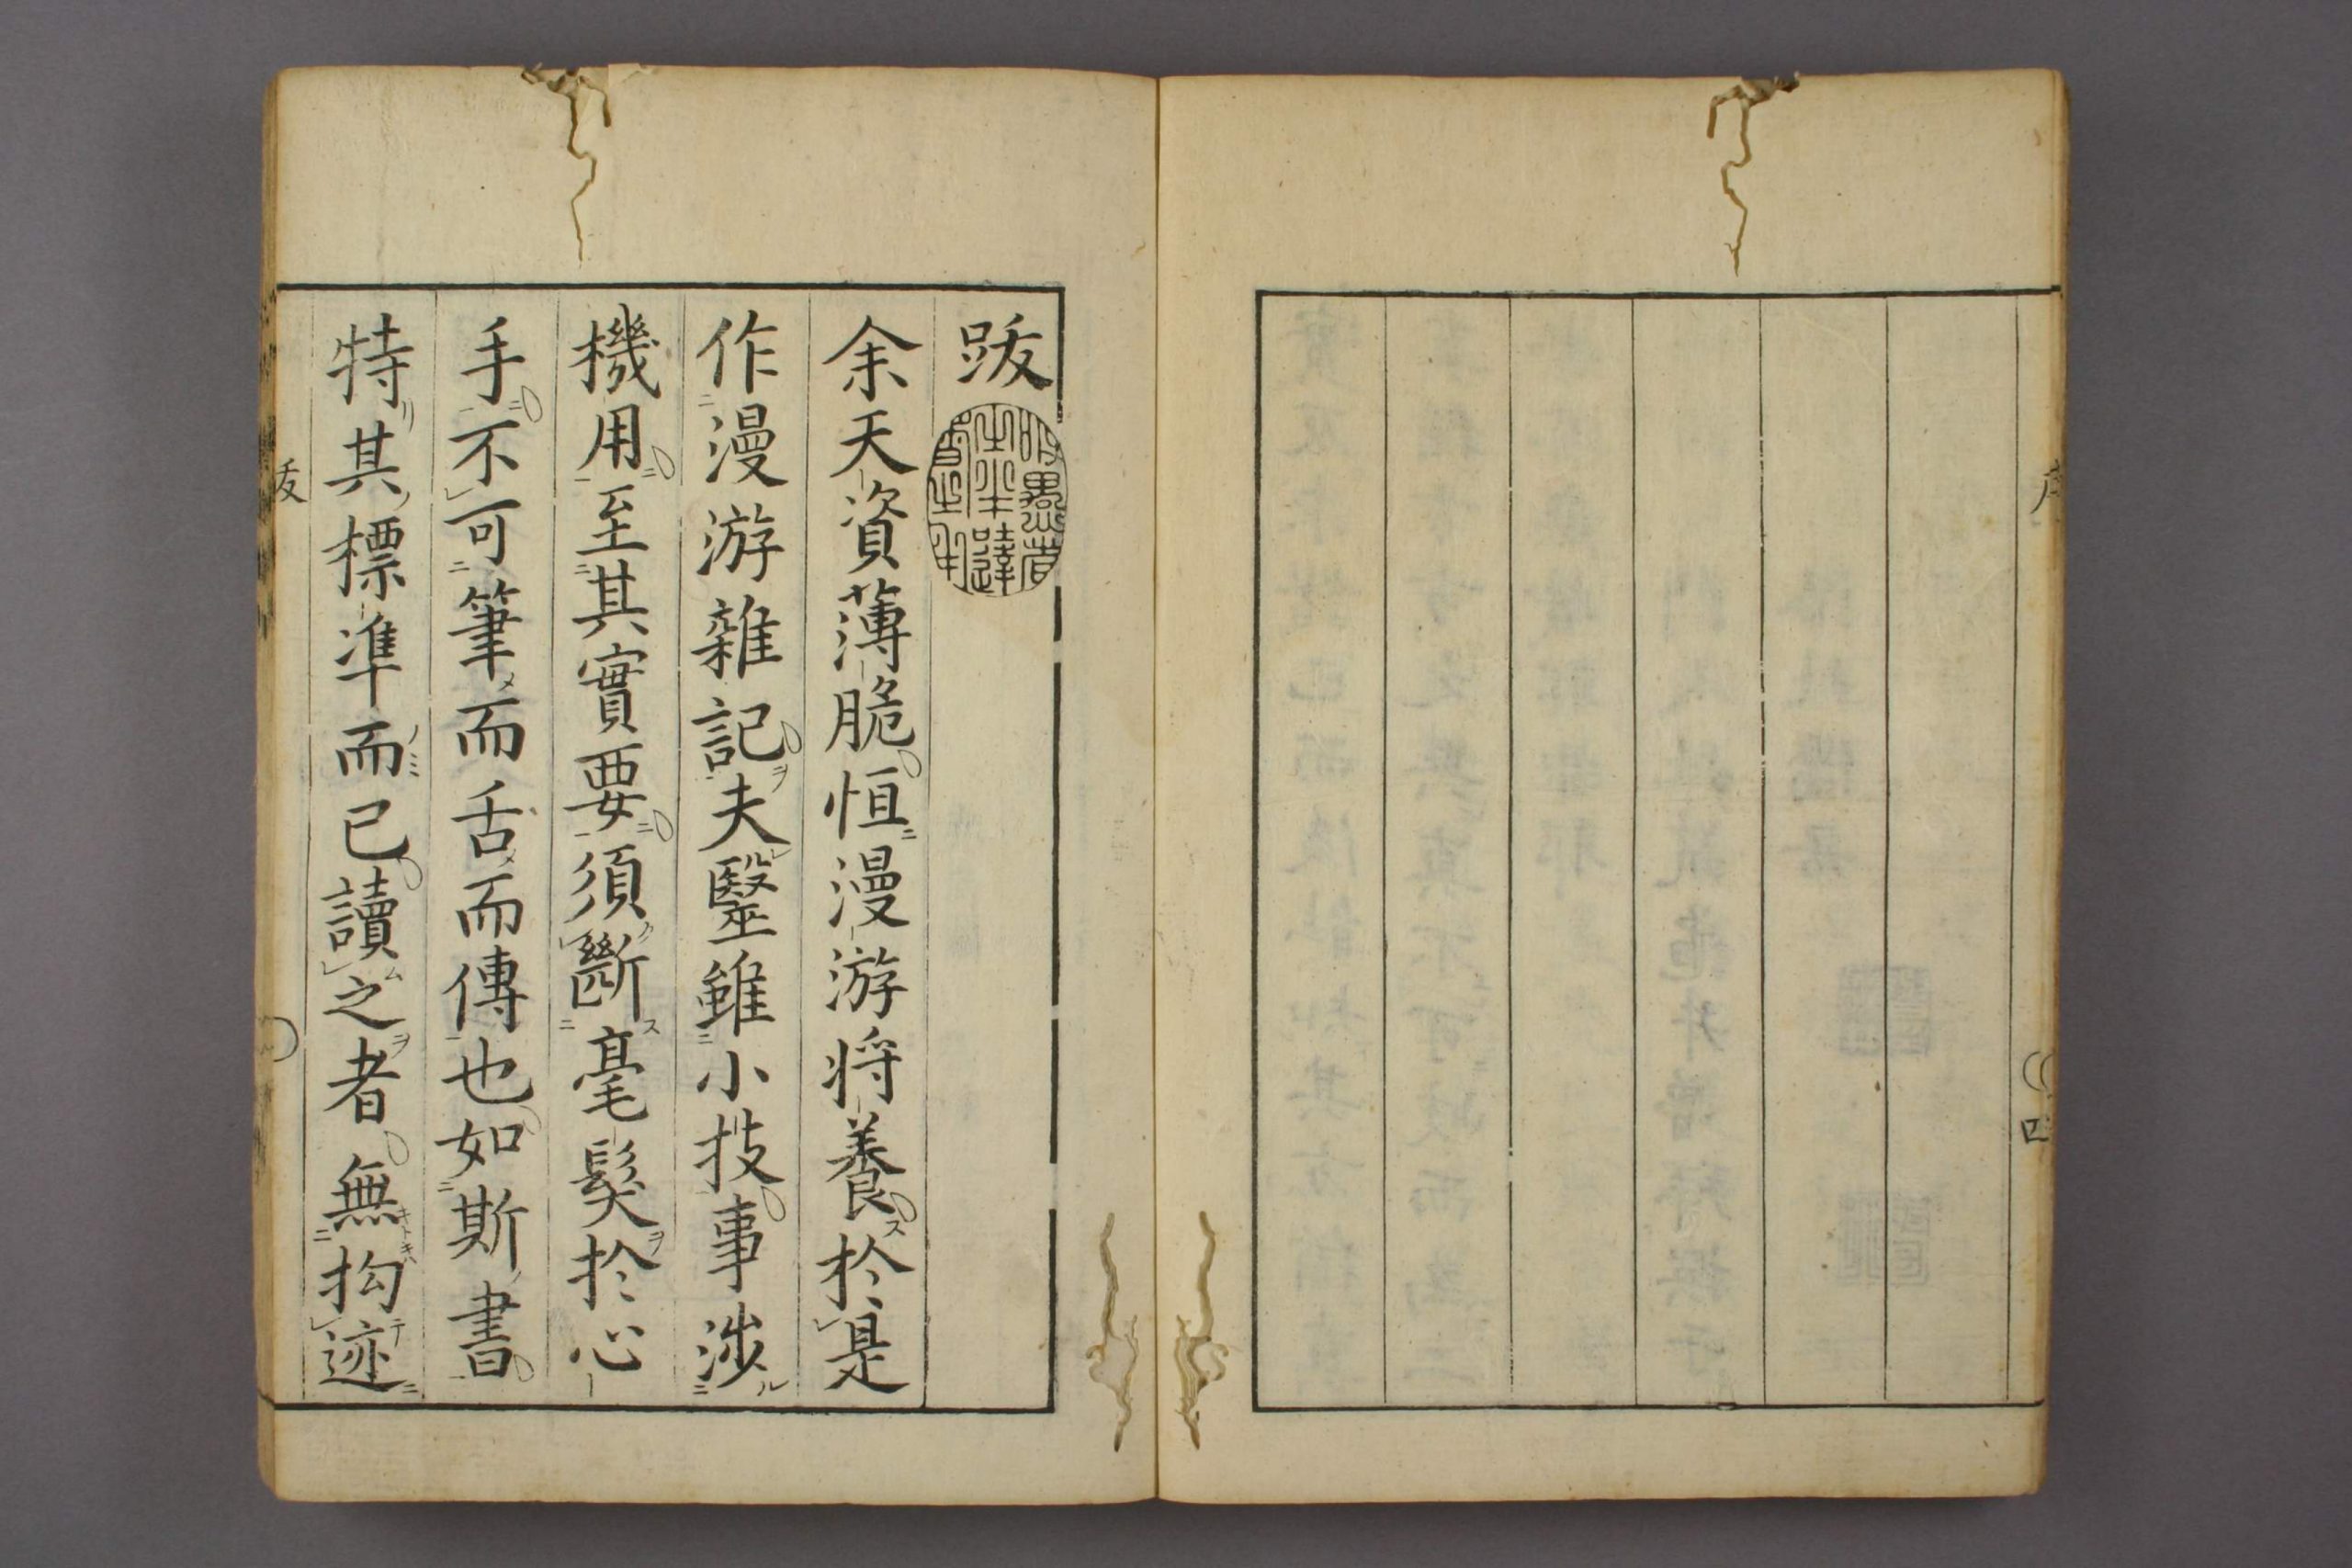 跋
余天資薄脆恒漫游将養於是
作漫游雜記夫毉雖小技事涉
機用至其實要須斷毫髮於心
手不可筆而舌而傳也如斯書
特其標準而已讀之者無拘迹
跋